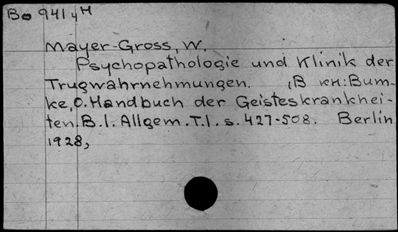 Bo 941 4 M
Mayer-Gross, W.
Psychopathologie und Klinik der
Trugwahrnehmungen. ,В кн:Bum-
ke,O.Handbuch der Geisteskrankhei-
ten.B.I.Allgem.T.I.s.427-508. Berlin
1928,